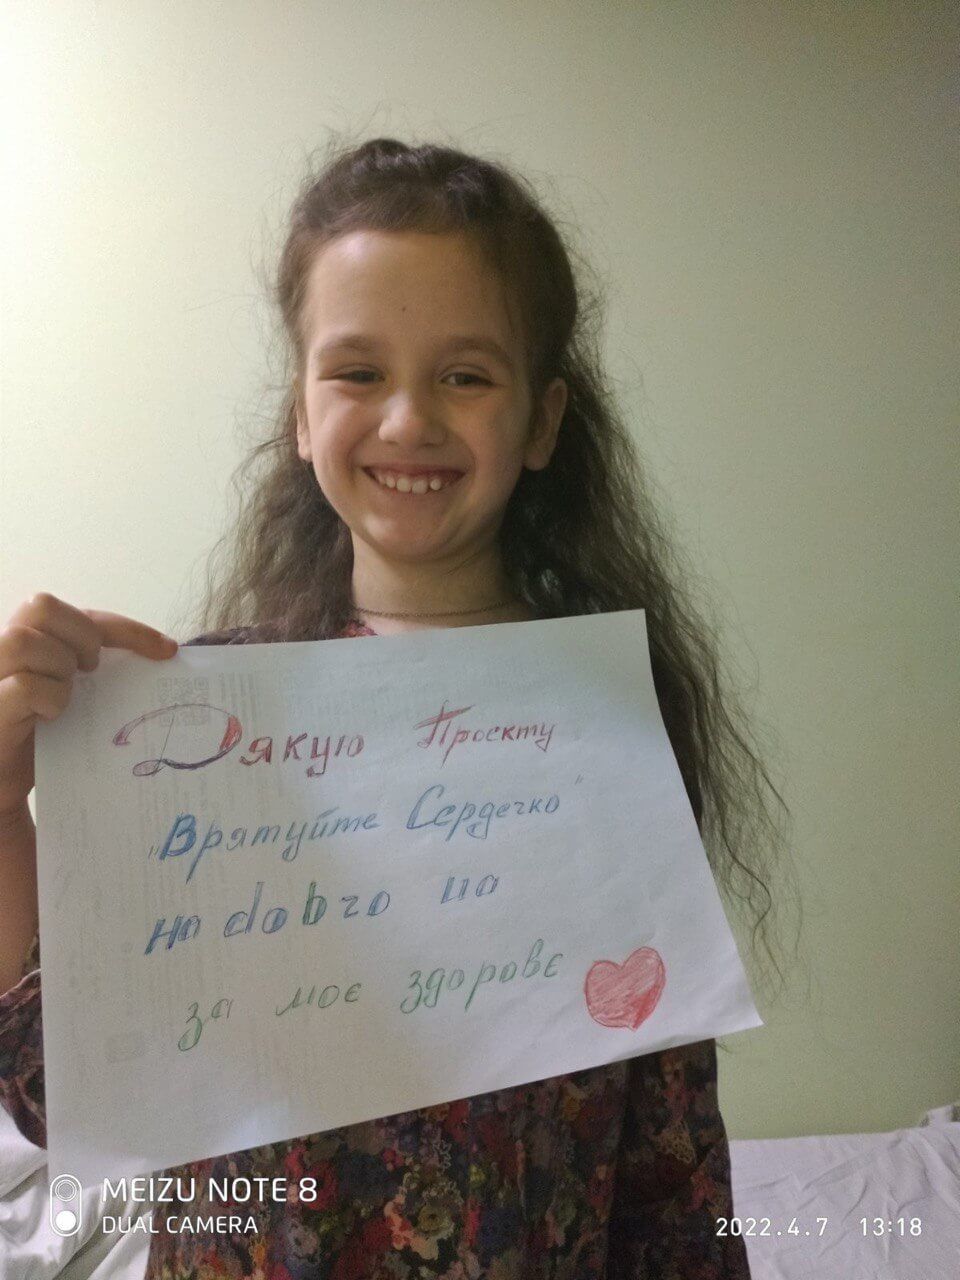 Дякую Проєкту
„Врятуйте Сердечко"
на dobro на
за моє здоровє
MEIZU NOTE 8
DUAL CAMERA
2022.4.7 13:18